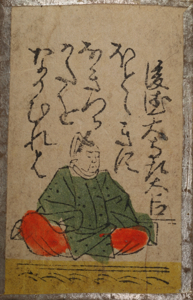 後徳大寺左大臣
ほとゝきす
なきつる
かたを
なかむれは